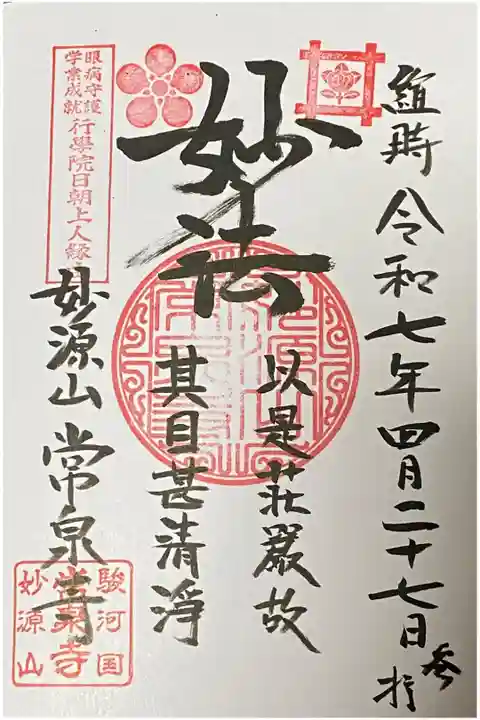 維時 令和七年四月二十七日
参拝
妙法
以是荘嚴故
其目甚清淨
眼病守護
学業成就
行學院日朝上人縁
妙源山 常泉寺
駿河国
常泉寺
妙源山